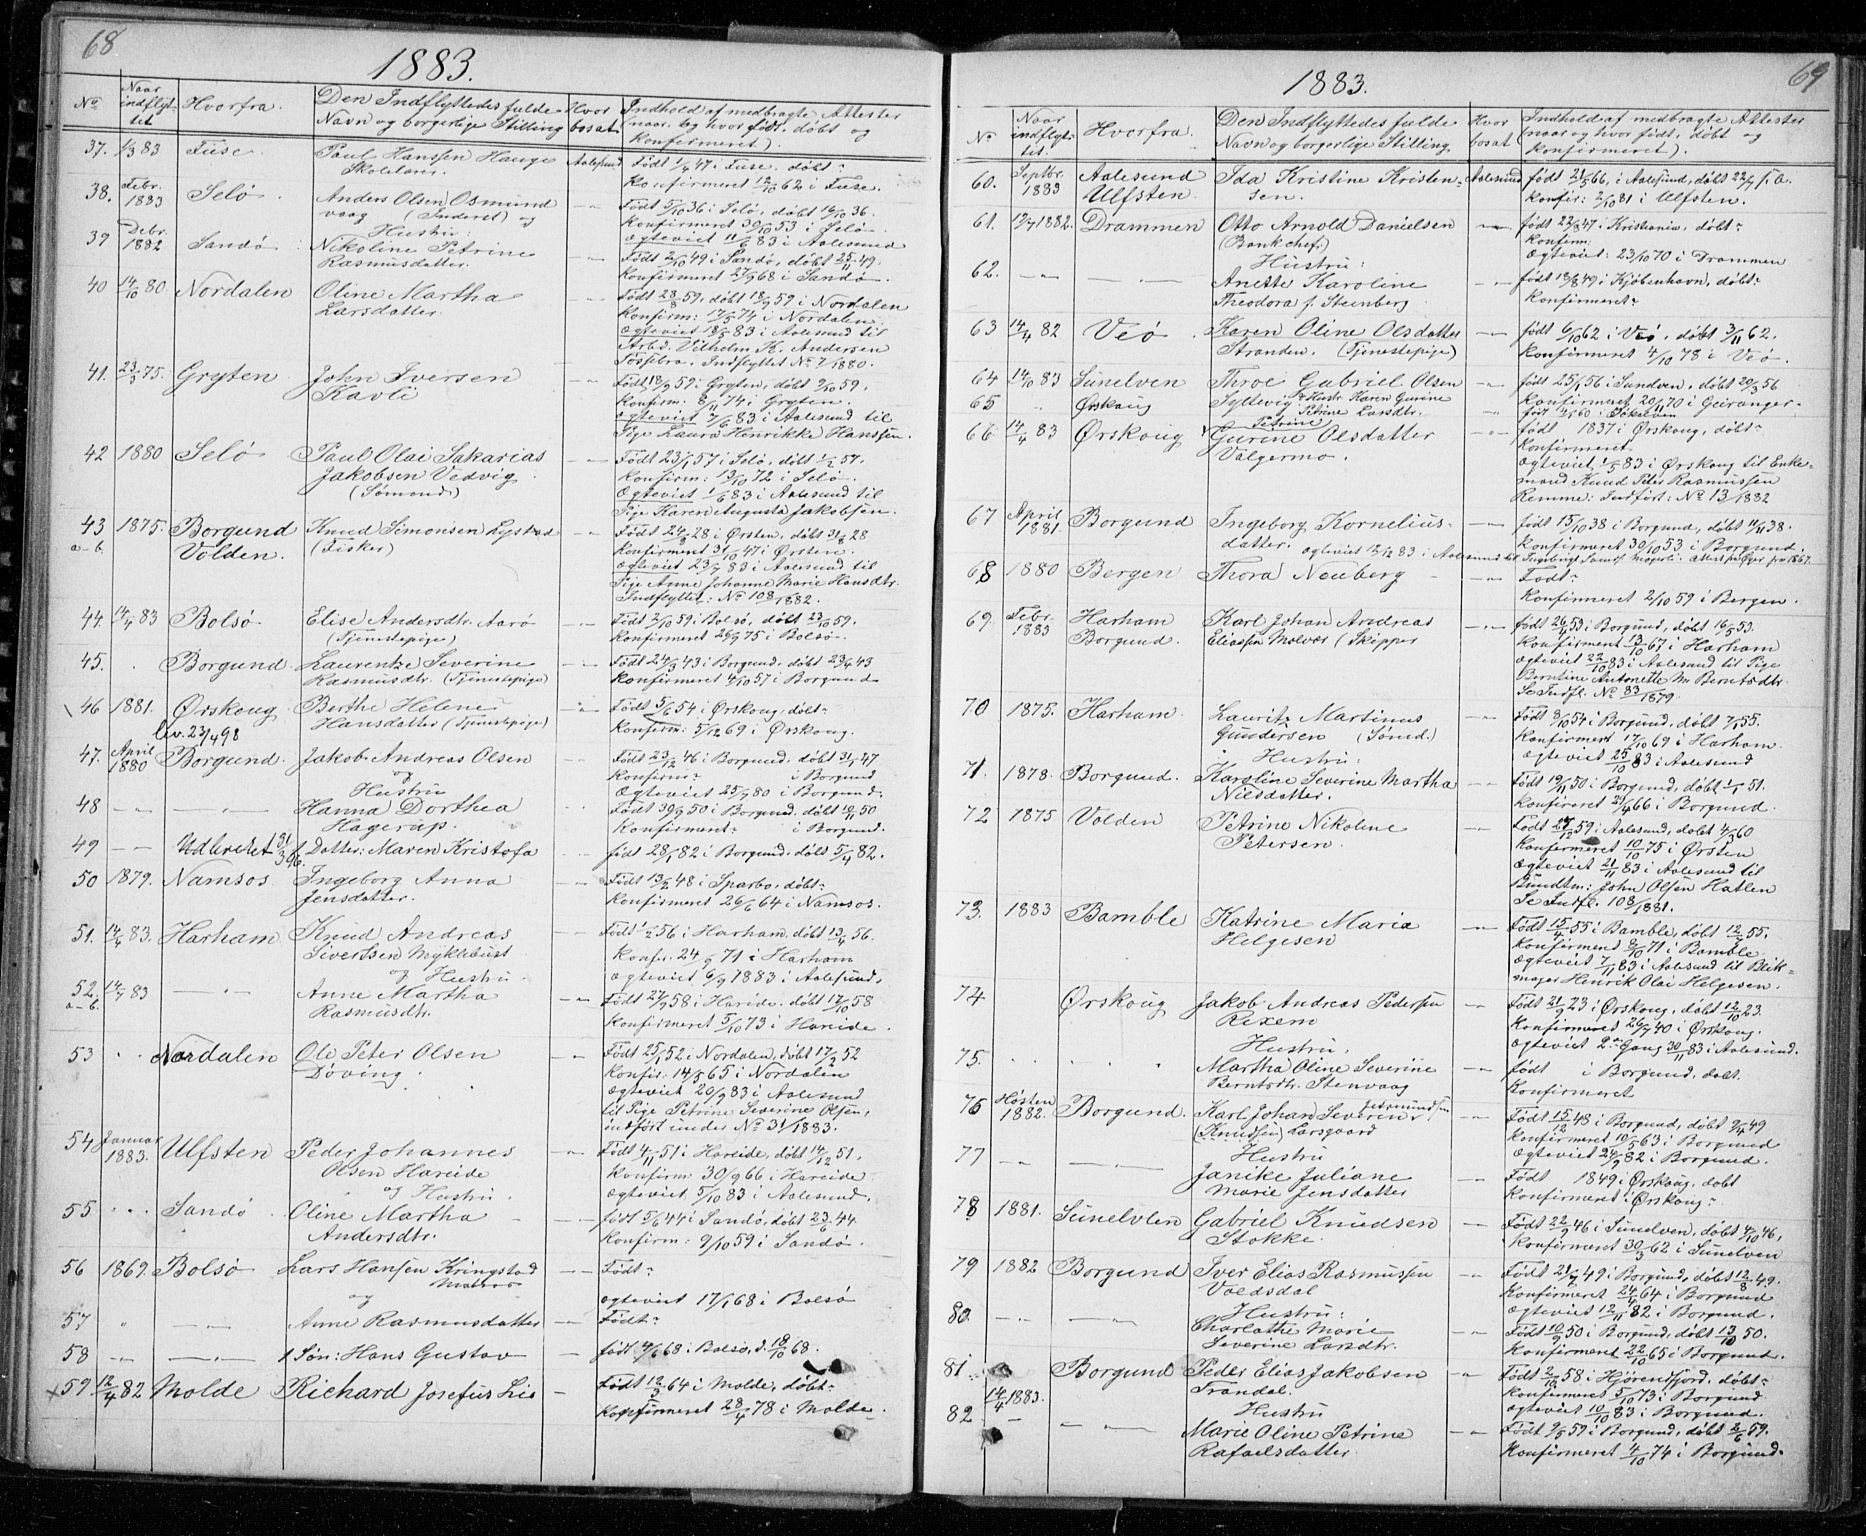 68
1883.
No
Naar indflyttet
Hvorfra.
Den Indflyttedes fulde Navn og borgerlige Stilling
Hvor bosat
Indhold af medbragte Attester (naar og hvor født, døbt og konfirmeret).
37. 1/3 83 Fuse. Paul Hanssen Hauge Aalesund Født 1/4 47 i Fuse, døbt
Skolelærer. Konfirmeret 12/10 62 i Fuse.
38. Febr. 1883 Selø Anders Olsen Osmund- Født 5/10 36 i Selø, døbt 16/10 36.
vaag (Inderst) og Konfirmeret 30/10 53 i Selø.
Hustru: Ægteviet 11/6 83 i Aalesund
39 1882 Sandø Nikoline Petrine Født 2/10 49 i Sandø, døbt 25/11 49.
Rasmusdatter. Konfirmeret 27/9 68 i Sandø.
40 14/10 80 Nordalen Oline Martha Født 28/8 59, døbt 18/9 59 i Nordalen
Larsdatter. Konfirm: 17/5 74 i Nordalen.
Ægteviet 18/5 83 i Aalesund til
Arbd. Vilhelm K. Andersen
Indflyttet No 7/1880.
41. 23/3 75. Gryten John Iversen Født 18/9 59 i Gryten, døbt 9/10 59.
Kavli Konfirm: 8/11 74 i Gryten.
Ægteviet 7/6 83 i Aalesund til
Pige Laura Henrikke Hansen.
42 1880 Selø Paul Olai Sakarias Født 23/1 57 i Selø, døbt 1/2 57.
Jakobsen Vedvig Konfirm: 13/10 72 i Selø.
(Sømand) Ægteviet 1/6 83 i Aalesund til
Pige Karen Augusta Jakobsen.
43 1875. Borgund Knud Simonsen Født 24/8 28 i Ørsten, døbt 31/8 28
a-b. Volden. (Fisker) Konfirmeret 31/10 47 i Ørsten.
Ægteviet 23/7 83 i Aalesund til
Pige Anne Johanne Marie Hansdtr.
Indflyttet: No 108/1882.
44. 14/4 83 Bolsø Elise Andersdtr. Aarø Født 2/10 59 i Bolsø, døbt 23/10 59.
(Tjenestepige) Konfirmeret 26/9 75 i Bolsø.
45. Borgund. Laurentze Severine Født 24/3 43 i Borgund, døbt 23/4 43
Rasmusdtr. (Tjenestepige) Konfirmeret 4/10 57 i Borgund
46 1881. Ørskoug Berthe Helene Født 5/6 54 i Ørskoug, døbt
lev. 23/4 98 Hansdatter (Tjenestepige) Konfirm: 5/12 69 i Ørskoug.
47. April 1880 Borgund. Jakob Andreas Olsen Født 23/12 46 i Borgund, døbt 31/1 47
og Konfirm: i Borgund
Hustru Ægteviet 25/7 80 i Borgund.
48 Hanna Dorthea Født 30/9 50 i Borgund, døbt 10/11 50
Hagerup. Konfirmeret i Borgund.
49 Udleveret 31/3 96. 1 Datter: Maren Kristofa født 28/1 82 i Borgund, døbt 5/4 82.
50 1879. Namsos. Ingeborg Anna Født 13/2 48 i Sparbo, døbt
Jensdatter. Konfirmeret 26/6 64 i Namsos.
51. 14/4 83. Harham Knud Andreas Født 1/2 56 i Harham, døbt 13/4 56.
Sivertsen Myklebust Konfir. 24/9 71 i Harham
og Hustru Ægteviet 6/9 1883 i Aalesund.
52. 14/4 83 Anne Martha Født 27/9 58 i Hareide, døbt 17/10 58
a-b. Rasmusdtr. Konfirmeret 5/10 73 i Hareide.
53 Nordalen Ole Peter Olsen Født 25/1 52 i Nordalen, døbt 17/2 52
Døving. Konfir: 14/5 65 i Nordalen
Ægteviet 20/9 83 i Aalesund
til Pige Petrine Severine Olsen,
indført under No 31/1883.
54 Januar 1883. Ulfsten Peder Johannes Født 4/11 51 i Hareide, døbt 14/12 51.
Olsen Hareide Konfirm: 30/9 66 i Hareide
og Hustru. Ægteviet 5/10 83 i Aalesund.
55 Sandø Oline Martha født 5/6 44 i Sandø, døbt 23/6 44
Andersdtr. Konfirm: 9/10 59 i Sandø.
56 1869. Bolsø Lars Hansen Kringstad Født
og Ægteviet 17/1 68 i Bolsø
57 Anne Rasmusdatter Født
58 1 Søn: Hans Gustav født 9/6 68 i Bolsø, d. 18/10 68.
59 12/4 82. Molde Richard Josefus Lie Født 12/3 64 i Molde, døbt
Konfirmeret 28/4 78 i Molde.
69
1883.
No
Naar indflyttet.
Hvorfra.
Den Indflyttedes fulde Navn og borgerlige Stilling
Hvor bosat
Indhold af medbragte Attester (naar og hvor født, døbt og konfirmeret).
60. Septbr. 1883 Aalesund Ida Kristine Kristen- Aalesund født 21/5 66, i Aalesund, døbt 22/7 s. a.
Ulfsten sen. Konfir: 2/10 81 i Ulfsten.
61. 12/7 1882. Drammen Otto Arnold Danielsen født 22/8 47. Kristiania, døbt
(Bankchef) Konfirm:
Hustru: Ægteviet: 23/10 70 i Drammen
62. Anette Karoline født 18/8 49 i Kjøbenhavn, døbt
Theodora f. Steenberg. Konfirmeret
63 14/4 82 Veø Karen Oline Olsdatter født 6/10 62 i Veø, døbt 3/11 62.
Stranden. (Tjenestepige) Konfirmeret 4/10 78 i Veø.
64 14/10 83 Sunelven Throe Gabriel Olsen født 25/1 56 i Sunelven, døbt 20/3 56
Konfirmeret 20/11 70 i Geiranger.
65 Ørskoug Syltevig. Hustr. Karen Gurine
Petrine Larsdtr. født 60
66. 14/4 83 Ørskoug Petrine Gurine Olsdatter født 1837 i Ørskoug, døbt
Valgermo. Konfirmeret
Ægteviet 1/5 83 i Ørskoug til Enke-
mand Knud Peter Rasmussen
Remme: Indført: No 13/1882
67 April 1881. Borgund Ingeborg Kornelius- født 15/10 38 i Borgund, døbt 11/11 38.
datter. Konfirmeret 30/10 53 i Borgund
ægteviet 13/12 83 i Aalesund til
68 1880 Bergen Thora Neuberg Født
Konfirmeret 2/10 59 i Bergen.
69. Febr. 1883 Harham Karl Johan Andreas født 26/4 53 i Borgund, døbt 16/5 53.
Borgund. Eliassen Molvær (Skipper Konfirmeret 13/10 67, i Harham
Ægteviet 22/10 83 i Aalesund til Pige
Berntine Antonette M Berntsdtr.
Se Indfl. No 83/1879
70 1875. Harham Lauritz Martinus Født 8/10 54 i Borgund, døbt 7/1 55.
Gundersen (Sømd.) Konfirmert 17/10 69 i Harham.
Hustru: Ægteviet 25/10 83 i Aalesund
71. 1878. Borgund. Karoline Severine Martha Født 19/11 50 i Borgund, døbt 1/1 51.
Nilsdatter. Konfireret 29/4 66 i Borgund.
72 1875 Volden Petrine Nikoline Født 27/12 59 i Aalesund, døbt 4/3 60
Petersen. Konfirmeret 10/10 75 i Ørsten
Ægteviet 21/11 83 i Aalesund til
Bundtm: John Olsen Hatlen
Se Indfl. 108/1881.
73. 1883 Bamble Katrine Marie Født 15/4 55 i Bamble, døbt 12/5 55.
Helgesen Konfirmend 8/10 71 i Bamble
Ægteviet 7/11 83 i Aalesund til Blik-
mager Henrik Olai Helgesen.
74 Ørskoug Jakob Andreas Pedersen Født 21/9 23 i Ørskoug, døbt 12/10 23.
Rexem Konfirmeret 26/7 40 i Ørskoug.
Hustru. Ægteviet 2den Gang 30/11 83 i Aalesund.
75. Martha Oline Severine født i Borgund, døbt.
Berntsdtr. Stenvaag Konfirmeret
76 Høsten 1882. Borgund. Karl Johan Severin Født 15/12 48 i Borgund, døbt 9/4 49
(Knudsen) Larsgaard Konfirmeret 10/5 63 i Borgund
Hustru Ægteviet 24/9 82 i Borgund.
77 Janike Juliane Født 1849 i Ørskoug, døbt
Marie Jensdatter Konfirmeret i Ørskoug
78 1881. Sunelven Gabriel Knudsen Født 22/9 46 i Sunelven, døbt 4/10 46,
Stokke. Konfirmeret 30/3 62 i Sunelven
79 1882 Borgund Iver Elias Rasmussen Født 21/7 49 i Borgund, døbt 12/8 49.
Valdsdal Konfirmeret 24/4 64 i Borgund
Hustru: Ægteviet 12/11 82 i Borgund.
80. Charlotte Marie Født 10/9 50 i Borgund, døbt 13/10 50.
Severine Larsdtr. Konfirmeret 22/10 65 i Borgund.
81. 14/4 1883. Borgund Peder Elias Jakobsen Født 2/10 58 i Hjørendfjord, døbt
Trandal. Konfirmeret 5/10 73 i Borgund
Hustru Ægteviet 10/10 83 i Borgund.
82 Marie Oline Petrine Født 9/5 59 i Borgund, døbt 2/6 59.
Rafaelsdatter. Konfirmeret 4/10 74 i Borgund.